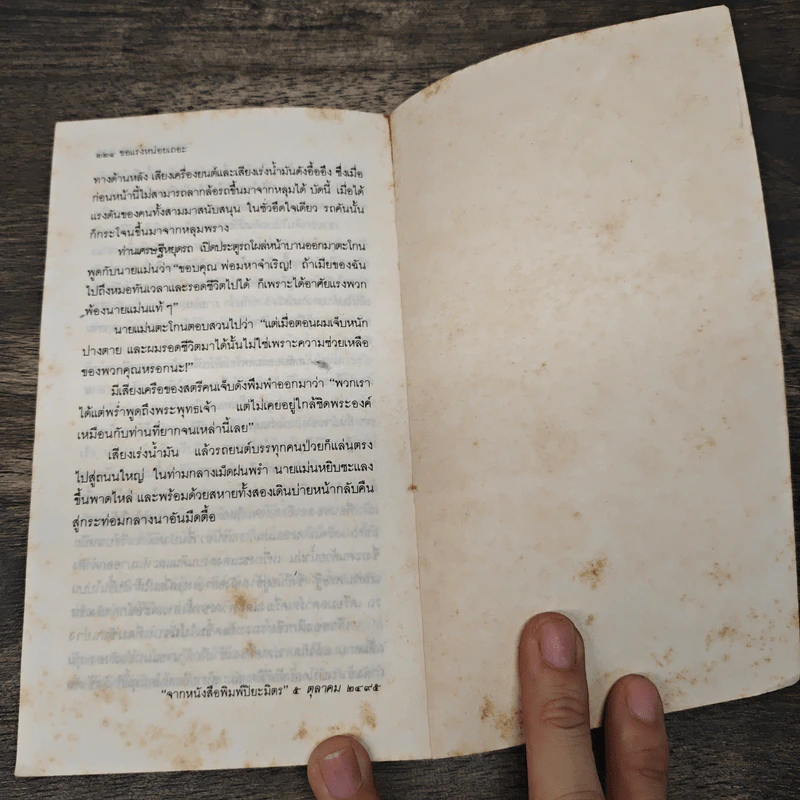 ๒๒๔ ขอแรงหน่อยเถอะ
ทางด้านหลัง เสียงเครื่องยนต์และเสียงเร่งน้ำมันดังอื้ออึง ซึ่งเมื่อ
ก่อนหน้านี้ไม่สามารถลากล้อรถขึ้นมาจากหลุมได้ บัดนี้ เมื่อได้
แรงดันของคนทั้งสามมาสนับสนุน ในชั่วอึดใจเดียว รถคันนั้น
ก็กระโจนขึ้นมาจากหลุมพราง
ท่านเศรษฐีหยุดรถ เปิดประตูรถโผล่หน้าบานออกมาตะโกน
พูดกับนายแม่นว่า “ขอบคุณ พ่อมหาจำเริญ! ถ้าเมียของฉัน
ไปถึงหมอทันเวลาและรอดชีวิตไปได้ ก็เพราะได้อาศัยแรงพวก
พ้องนายแม่นแท้ ๆ”
นายแม่นตะโกนตอบสวนไปว่า “แต่เมื่อตอนผมเจ็บหนัก
ปางตาย และผมรอดชีวิตมาได้นั้นไม่ใช่เพราะความช่วยเหลือ
ของพวกคุณหรอกนะ!”
มีเสียงเครือของสตรีคนเจ็บดังพึมพำออกมาว่า “พวกเรา
ได้แต่พร่ำพูดถึงพระพุทธเจ้า แต่ไม่เคยอยู่ใกล้ชิดพระองค์
เหมือนกับท่านที่ยากจนเหล่านี้เลย”
เสียงเร่งน้ำมัน แล้วรถยนต์บรรทุกคนป่วยก็แล่นตรง
ไปสู่ถนนใหญ่ ในท่ามกลางเม็ดฝนพรำ นายแม่นหยิบชะแลง
ขึ้นพาดไหล่ และพร้อมด้วยสหายทั้งสองเดินบ่ายหน้ากลับคืน
สู่กระท่อมกลางนาอันมืดตื้อ
“จากหนังสือพิมพ์ปิยะมิตร” ๕ ตุลาคม ๒๔๙๕